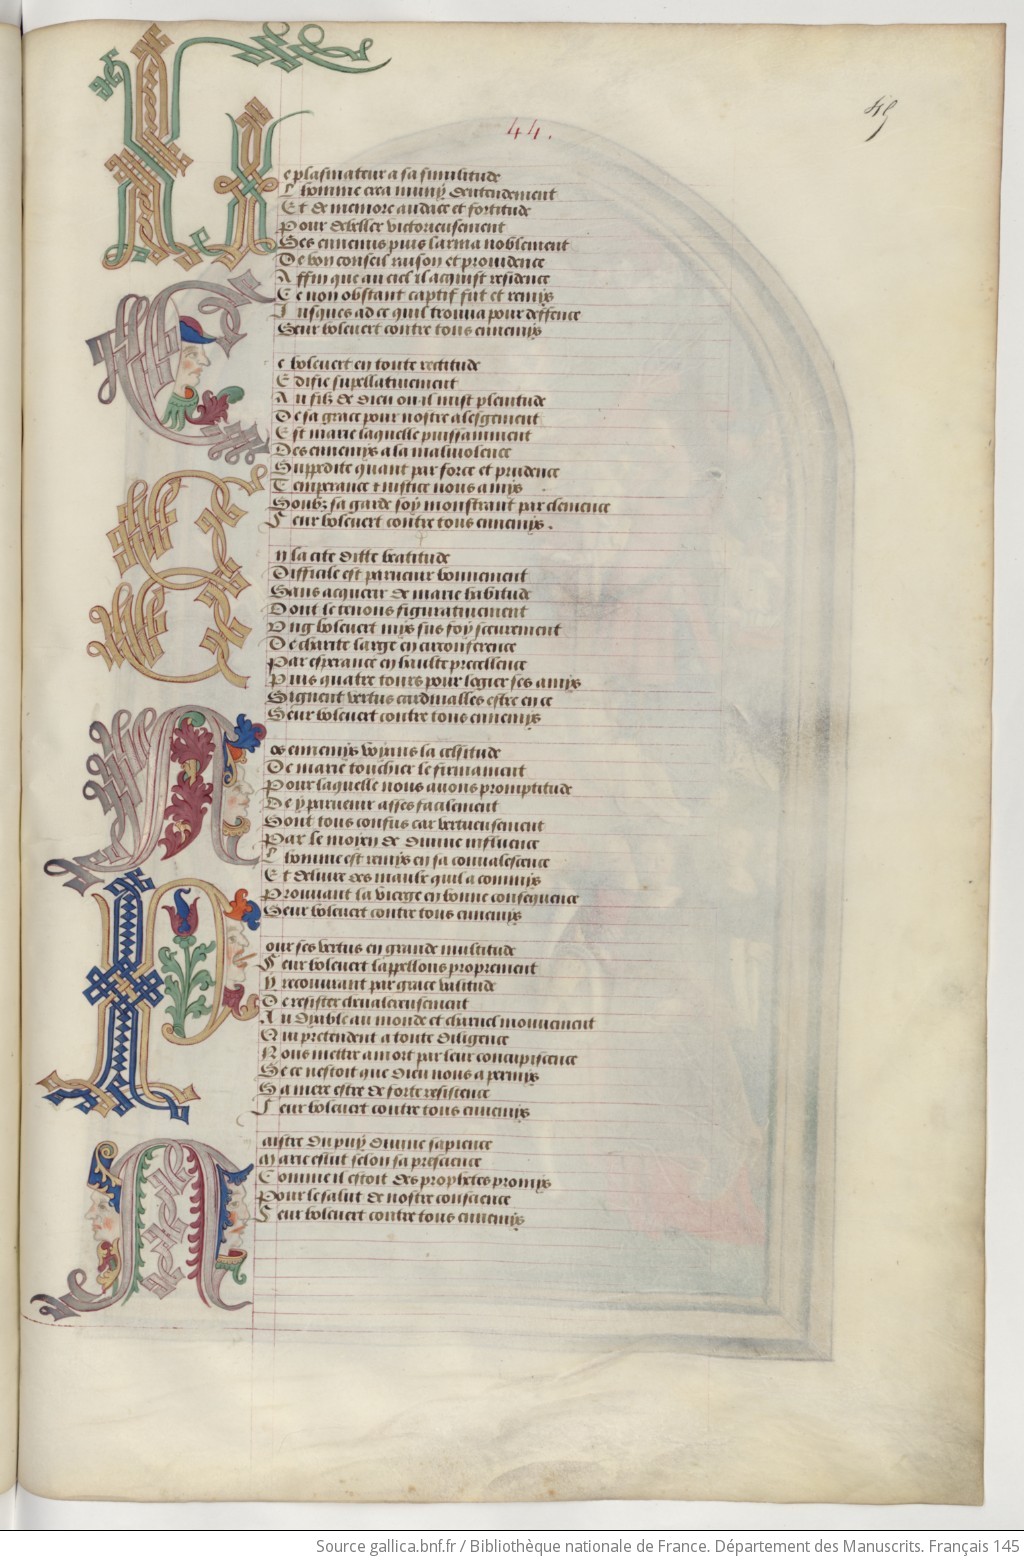 49
44.
Le plasmateur a sa similitude
L homme crea muny dentendement
Et de memore audace et fortitude
Pour debeller victorieusement
Ses ennemis puis larma noblement
De bon conseil raison et providence
Affin que au ciel il acquist residence
Ce non obstant captif fut et remys
Jusques ad ce quil trouva pour deffence
Seur bolevert contre tous ennemys
Ce bolevert en toute rectitude
Edifie supellativement
Au filz de dieu ou il mist plenitude
De sa grace pour nostre alesgement
Est marie laquelle puissamment
Des ennemys a la malivolence
Suppedite quant par force et prudence
Temperance et justice nous a mys
Soubz sa garde soy monstrant par clemence
Seur bolevert contre tous ennemys.
En la cite ditte beatitude
Difficile est parvenir bonnement
Sans acquerir de marie habitude
Dont le tenons figurativement
Ung bolevert mys sus foy seurement
De charite large en circonference
Par esperance en haulte precellence
Puis quatre tours pour logier ses amys
Signent vertus cardinalles estre en ce
Seur bolevert contre tous ennemys
Nos ennemys voyans la celsitude
De marie touchier le firmament
Pour laquelle nous avons promptitude
De y parvenir asses facilement
Sont tous confus car vertueusement
Par le moyen de divine influence
L homme est remys en sa convalescence
Et delivre des maulx quil a commys
Prouvant la vierge en bonne consequence
Seur bolevert contre tous ennemys
Pour ses vertus en grande multitude
Seur bolevert lappellons proprement
Y recouvrant par grace validude
De resister chevalereusement
Au dyable au monde et charnel mouvement
Qui pretendent a toute diligence
Nous mettre a mort par leur concupiscence
Se ce nestoit que dieu nous a permys
Sa mere estre de forte resistence
Seur bolevert contre tous ennemys
Maistre du puy divine sapience
Marie eslut selon sa prescience
Comme il estoit des prophetes promys
Pour le salut de nostre conscience
Seur bolevert contre tous ennemys
Source gallica.bnf.fr / Bibliothèque nationale de France. Département des Manuscrits. Français 145